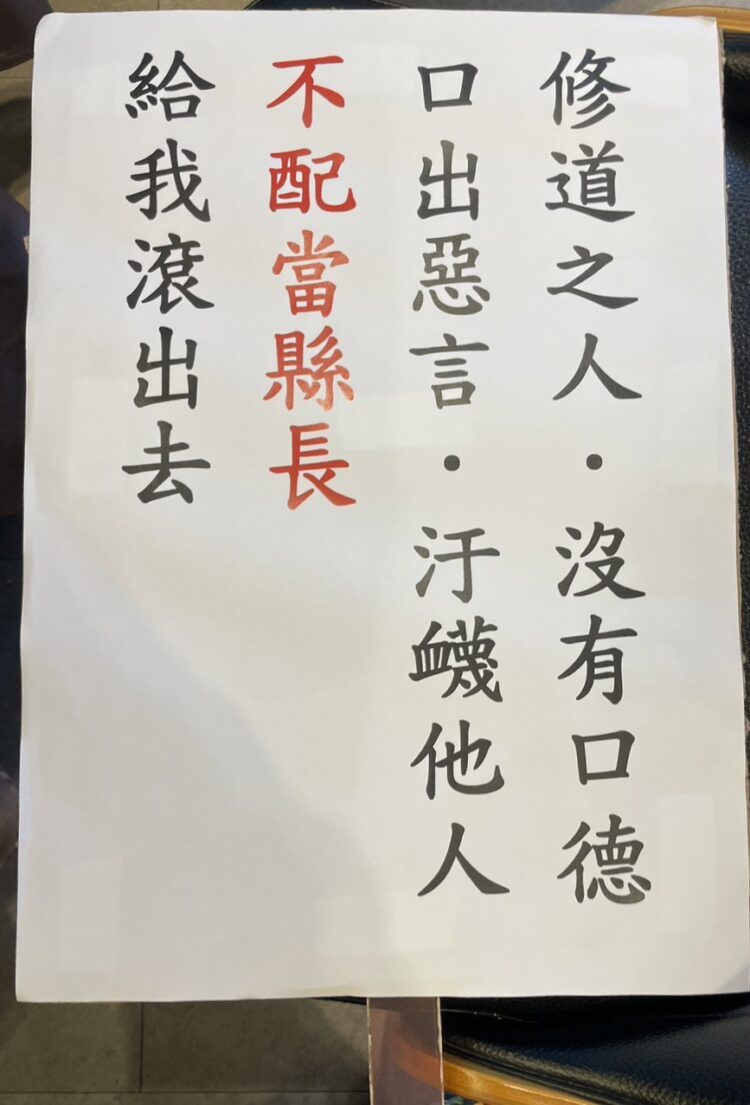 修道之人・沒有口德
口出惡言・汙衊他人
不配當縣長
給我滾出去